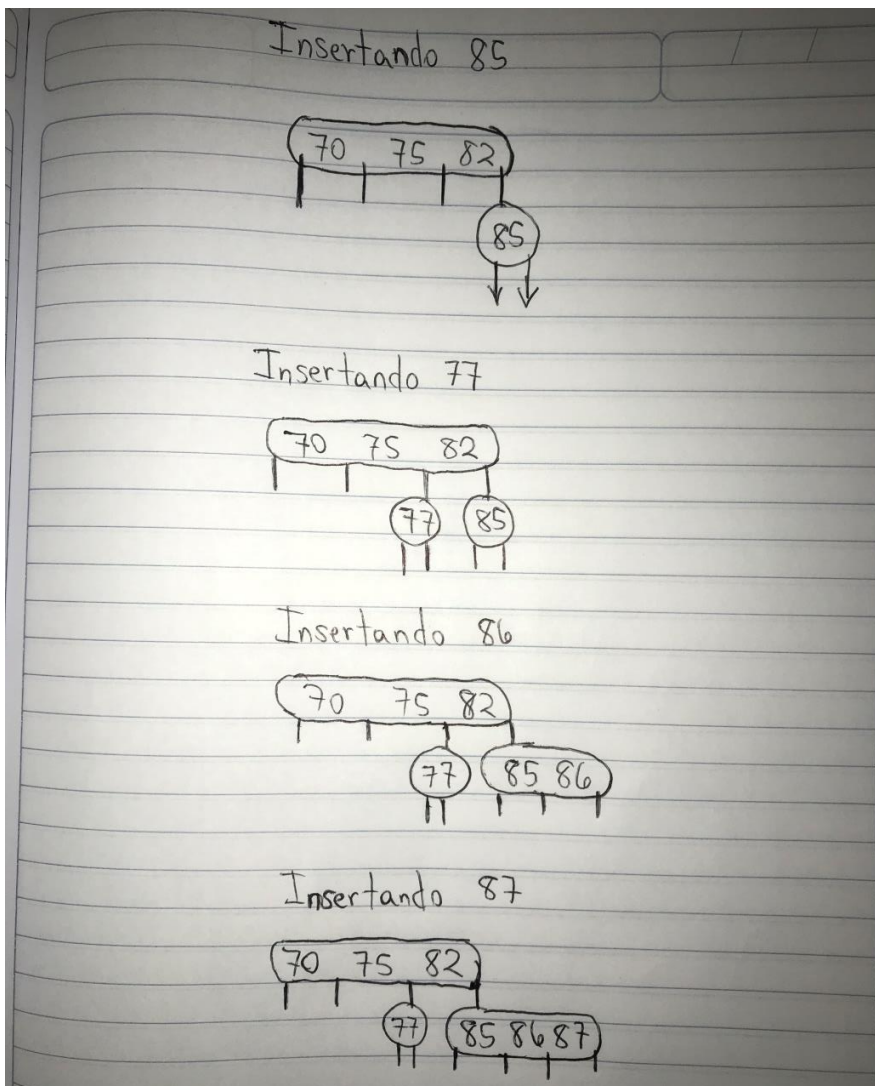 Insertando 85
70 75 82
85
Insertando 77
70 75 82
77 85
Insertando 86
70 75 82
77 85 86
Insertando 87
70 75 82
77 85 86 87